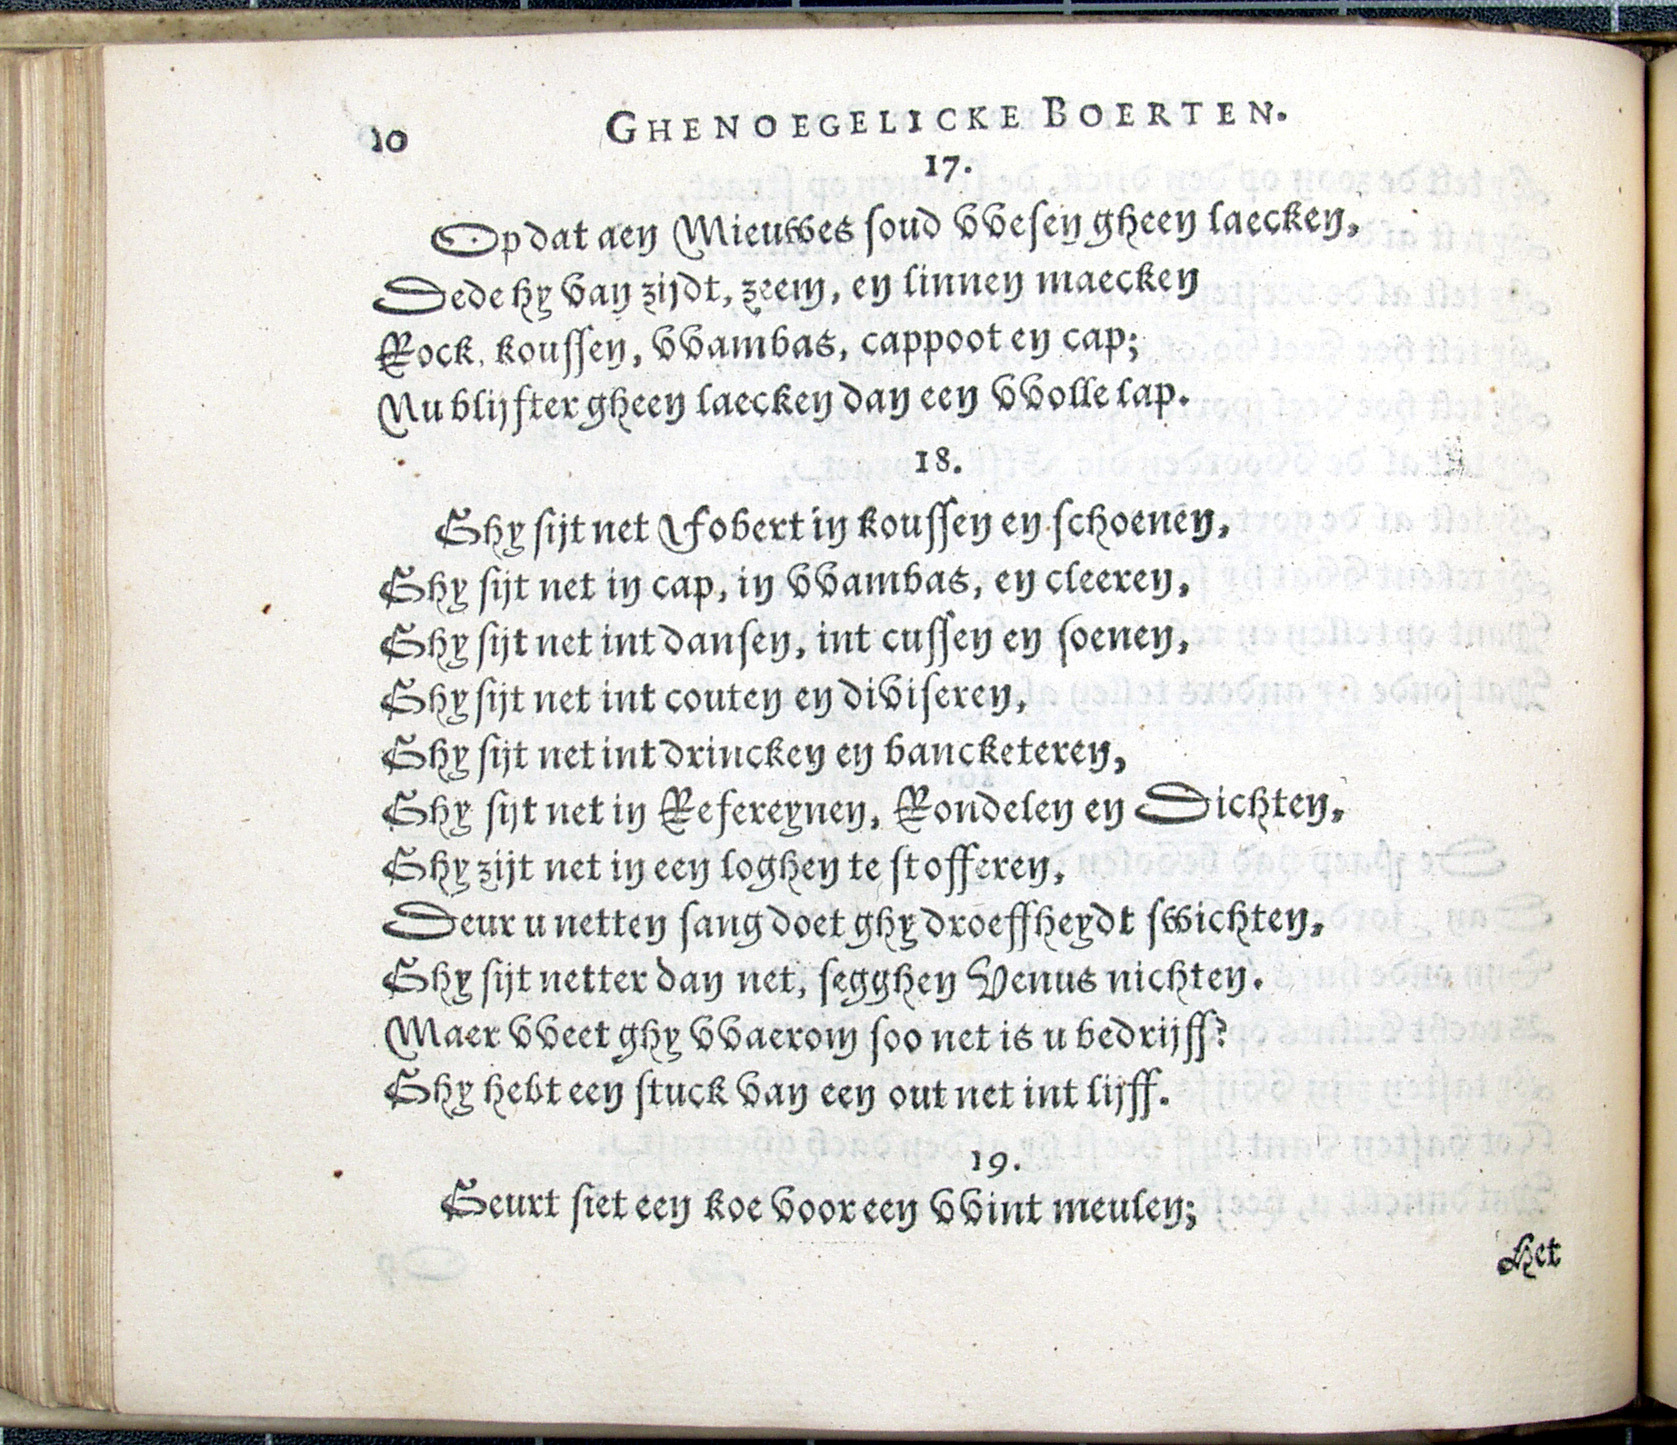 10 GHENOEGELICKE BOERTEN.
17.
Op dat aen Mieuwes soud vvesen gheen laecken,
Dede hy van zijdt, zeem, en linnen maecken
Rock, koussen, vvambas, cappoot en cap;
Nu blijfter gheen laecken dan een vvolle lap.
18.
Ghy sijt net Jobert in koussen en schoenen,
Ghy sijt net in cap, in vvambas, en cleeren,
Ghy sijt net int dansen, int cussen en soenen,
Ghy sijt net int couten en diviseren,
Ghy sijt net int drincken en bancketeren,
Ghy sijt net in Refereynen, Rondelen en Dichten,
Ghy zijt net in een loghen te stofferen,
Deur u netten sang doet ghy droeffheydt swichten,
Ghy sijt netter dan net, segghen Venus nichten.
Maer vveet ghy vvaerom soo net is u bedrijff?
Ghy hebt een stuck van een out net int lijff.
19.
Geurt siet een koe voor een vvint meulen;
Het